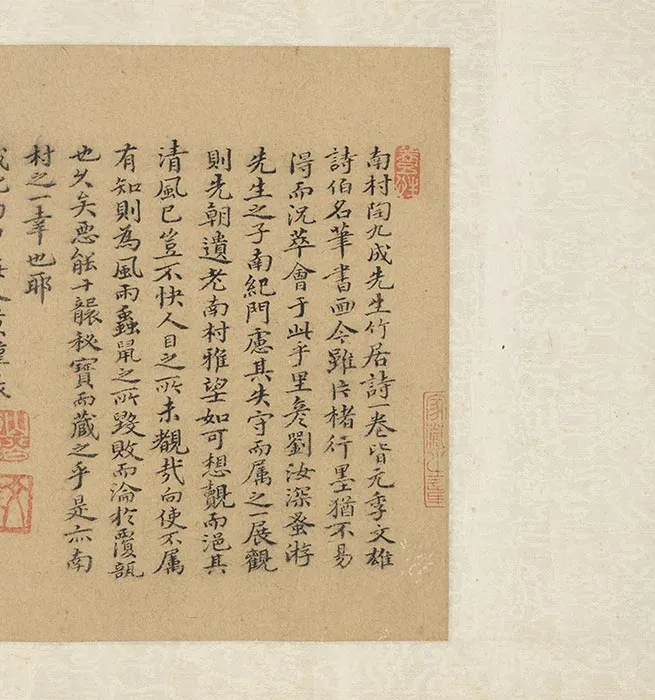 南村陶九成先生竹居詩一卷皆元季文雄
詩伯名筆書画今雖片楮行墨猶不易
得而況萃會于此乎里彥劉汝深蚤游
先生之子南紀門慮其失守而属之一展觀
則先朝遺老南村雅望如可想覿而浥其
清風已豈不快人目之所未覩哉向使不属
有知則為風雨蟲鼠之所毀敗而淪於覆瓿
也久矣惡能十襲秘寶而藏之乎是亦南
村之一幸也耶